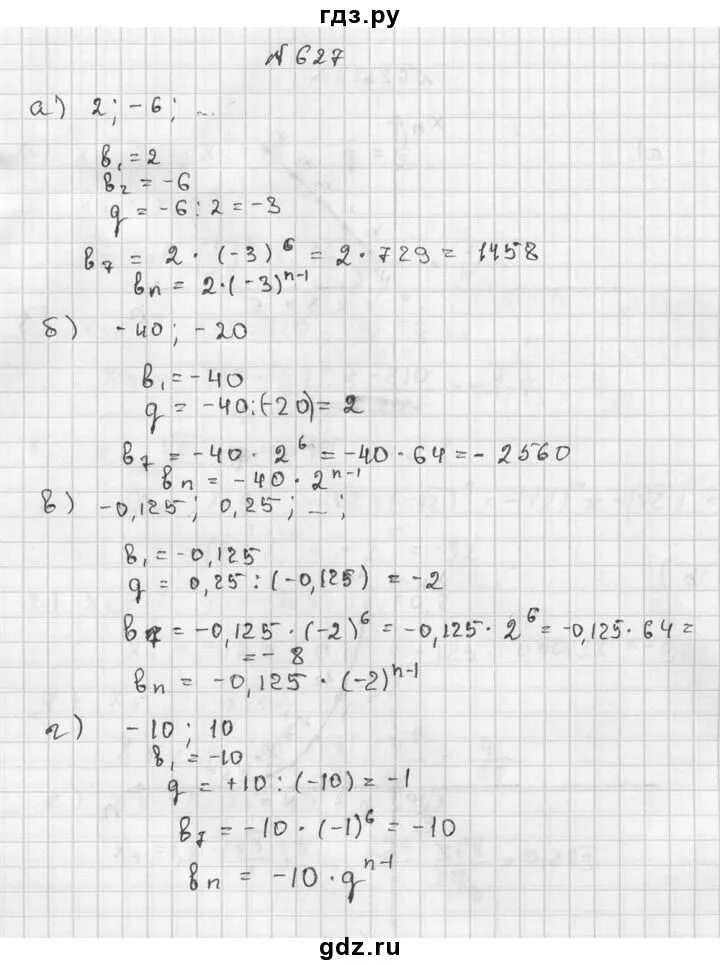 гдз.ру
№ 627
а) 2; -6; ...
b₁ = 2
b₂ = -6
q = -6 : 2 = -3
b₇ = 2 · (-3)⁶ = 2 · 729 = 1458
bₙ = 2·(-3)ⁿ⁻¹
б) -40; -20
b₁ = -40
q = -40:(-20) = 2
b₇ = -40 · 2⁶ = -40 · 64 = -2560
bₙ = -40 · 2ⁿ⁻¹
в) -0,125; 0,25; ...;
b₁ = -0,125
q = 0,25 : (-0,125) = -2
b₇ = -0,125 · (-2)⁶ = -0,125 · 2⁶ = -0,125 · 64 =
= - 8
bₙ = -0,125 · (-2)ⁿ⁻¹
г) -10; 10
b₁ = -10
q = +10 : (-10) = -1
b₇ = -10 · (-1)⁶ = -10
bₙ = -10 · qⁿ⁻¹
gdz.ru